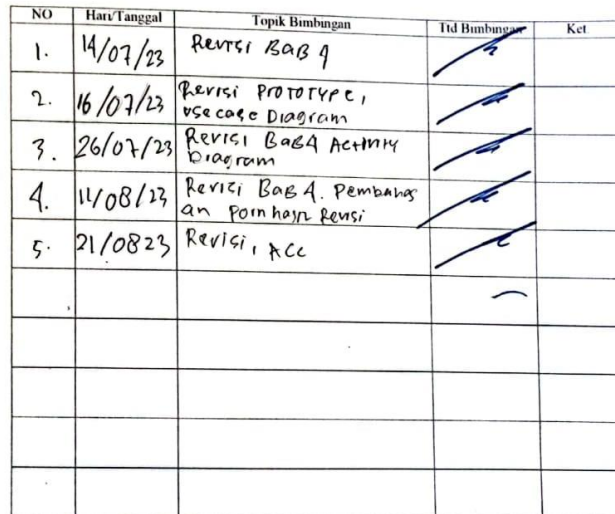 NO Hari/Tanggal Topik Bimbingan Ttd Bimbingan Ket
1. 14/07/23 Revisi BAB 4
2. 16/07/23 Revisi PROTOTYPE,
usecase Diagram
3. 26/07/23 Revisi BAB 4 Activity
Diagram
4. 11/08/23 Revisi BAB 4. Pembahas
an Revisi
5. 21/0823 Revisi, ACC